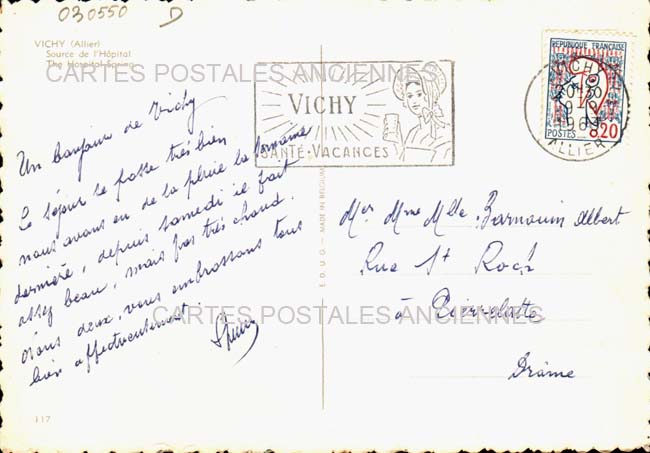 030550 D
VICHY (Allier)
Source de l'Hôpital
The Hospital Spring
CARTES POSTALES ANCIENNES
Un bonjour de Vichy
Le séjour se passe très bien
nous avons eu de la pluie la semaine
dernière, depuis samedi il fait
assez beau, mais pas très chaud.
Nous deux, vous embrassons tous
bien affectueusement.
117
E.D.U.G. - MADE IN BELGIUM
VICHY
SANTÉ-VACANCES
VICHY
ALLIER
REPUBLIQUE FRANÇAISE
POSTES 0,20
Mer Mme Mlle Barnouin Albert
Rue St Roch
à
Drôme
CARTES POSTALES ANCIENNES